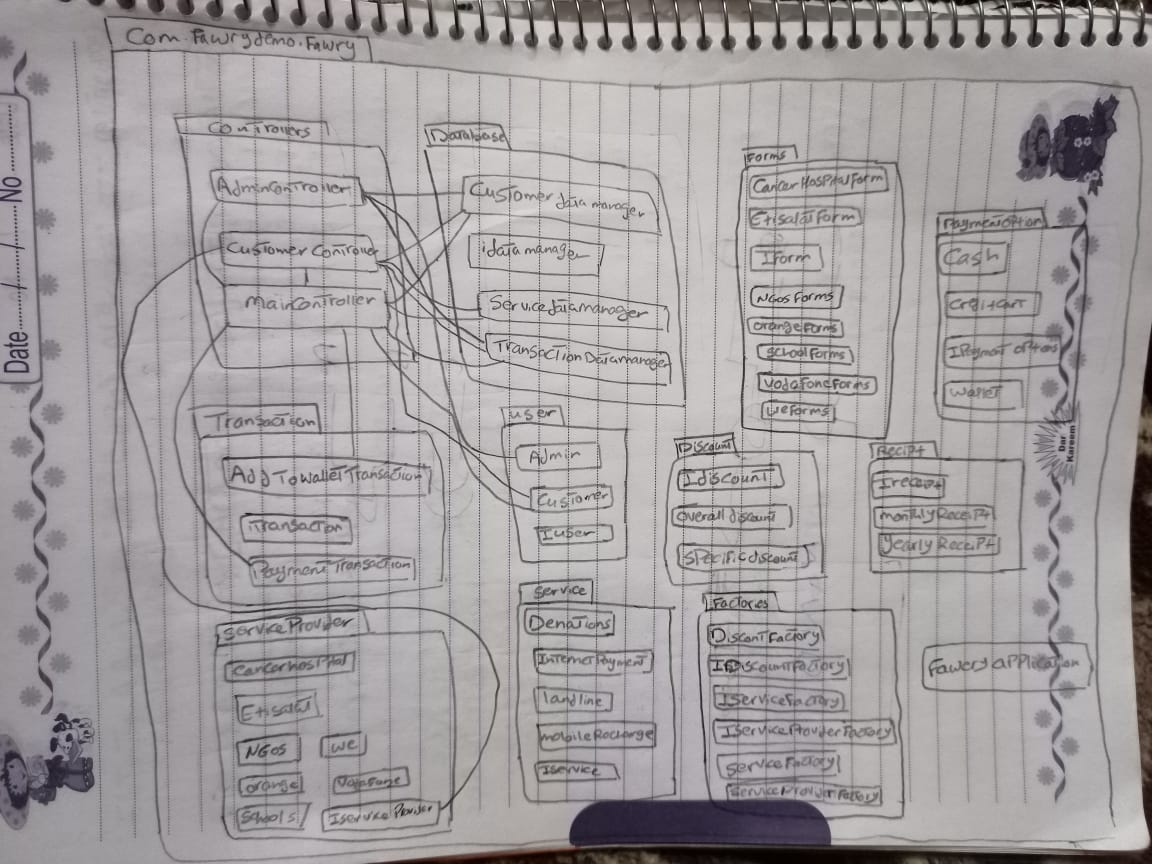 Com.Fawrydemo.Fawry
Controllers
AdminController
Customer Controller
MainController
Database
Customer data manager
idatamanager
Servicedatamanager
TransactionDatamanager
Forms
CancerHospitalForm
EtisalatForm
IForm
NGosForms
OrangeForms
SchoolForms
VodafoneForms
WeForms
PaymentOption
Cash
Creditcart
IPayment options
Wallet
Transaction
AddToWalletTransaction
iTransaction
PaymentTransaction
user
Admin
Customer
Iuser
Discount
Idiscount
overall discount
Specificdiscount
Recipt
Ireceipt
monthlyReceipt
YearlyReceipt
ServiceProvider
Cancerhospital
Etisalat
NGOs
we
orange
Vodafone
Schools
IserviceProvider
Service
Donations
InternetPayment
landline
mobileRecharge
Iservice
Factories
DiscontFactory
IDiscountFactory
IServiceFactory
IServiceProviderFactory
ServiceFactory
ServiceProviderFactory
Faweryapplication
Date....../....../......No
Dar
Kareem